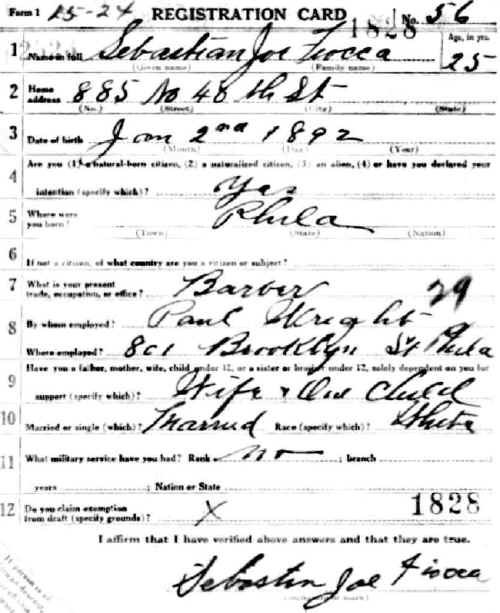 Form 1 25-24 REGISTRATION CARD 1828 No. 56
1 Name in full Sebastian Joe Fiocca Age, in yrs. 25
(Given name) (Family name)
2 Home address 885 No 48th St
(No.) (Street) (City) (State)
3 Date of birth Jan 2nd 1892
(Month) (Day) (Year)
4 Are you (1) a natural-born citizen, (2) a naturalized citizen, (3) an alien, (4) or have you declared your
intention (specify which)? Yes
5 Where were you born? Phila
(Town) (State) (Nation)
6 If not a citizen, of what country are you a citizen or subject?
7 What is your present trade, occupation, or office? Barber 29
8 By whom employed? Paul Wright
Where employed? 801 Brooklyn St Phila
9 Have you a father, mother, wife, child under 12, or a sister or brother under 12, solely dependent on you for
support (specify which)? Wife & One Child
10 Married or single (which)? Married Race (specify which)? White
11 What military service have you had? Rank no ; branch
years ; Nation or State
12 Do you claim exemption from draft (specify grounds)? X 1828
I affirm that I have verified above answers and that they are true.
Sebastin Joe Fiocca